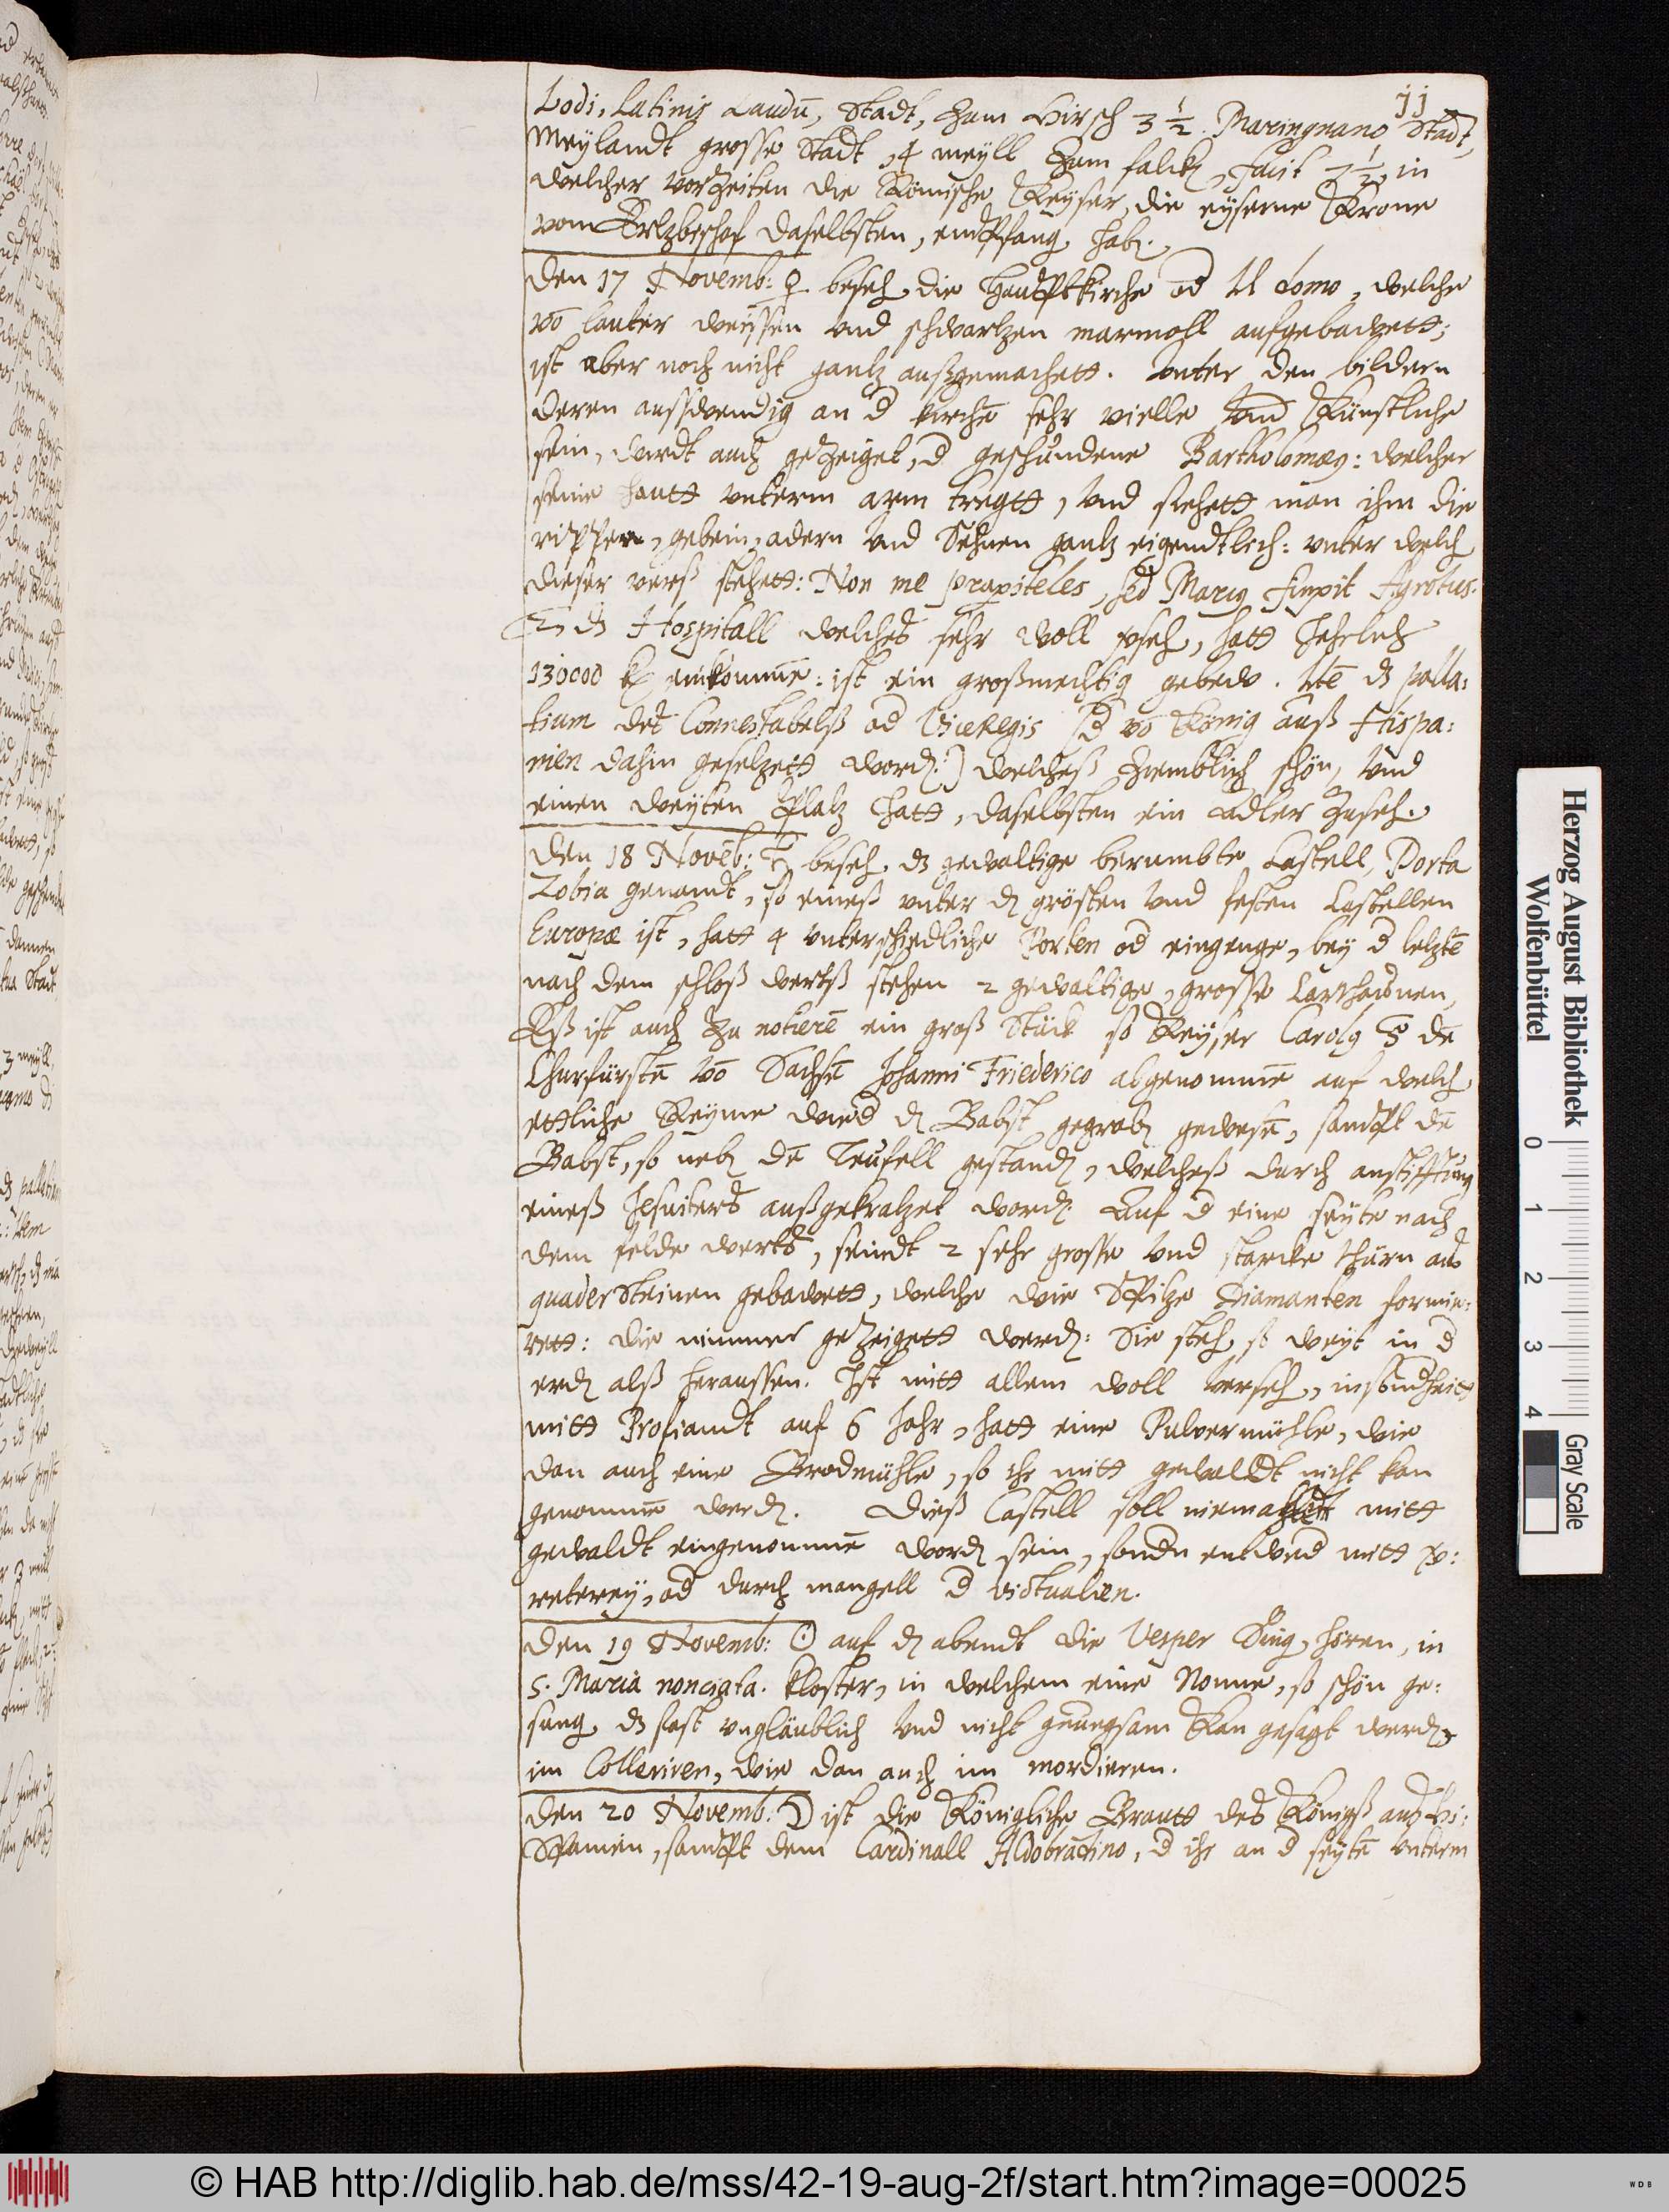 jj
Lodi, Latinis Laudū, Stadt, Zum Hirsch 3 ½. Maringnano Stadt,
Meylandt grosse Stadt, 4 meyll Zum falck, facit 7½, in
welcher vorzeiten die Römische Keyser, die eyserne Krone
vom Ertzbischof daselbsten, endtpfang hab.
Den 17 Novemb: ♀ beseh, die Haudtptkirche od Il domo, welche
vō lauter weyssen vnd schwartzen marmoll aufgebawett;
ist aber noch nicht gantz außgemachett. Vnter den bildern
deren ausswendig an d kirchē sehr vielle vnd Künstliche
sein, wirdt auch gezeiget, d geschundene Bartholomæ9: welcher
seine hautt vnterm arm tregtt, vnd siehett man ihm die
rippen, gebein, adern vnd Sehnen gantz eigendtlich: vnter welch
dieser verß stehett: Non me praxiteles, sed Marc9 finxit Agrotus.
Hospitall welches sehr woll vseh, hatt Jehrlich
130000 einkommē: ist ein großmechtig gebew. Itē dz palla:
tium des Connestabelß od ViceRegis so vō König auß Hispa:
nien dahin gesetzett word:) welcheß Ziemblich schön, vnd
einen weyten Platz hatt, daselbsten ein Adler Zuseh.
Den 18 Novēb: ♄ beseh, dz gewaltige berumbte Castell, Porta
Zobia genandt, so eineß vnter d grösten vnd festen Castellen
Europæ ist, hatt 4 vnterschiedliche Porten od eingenge, bey d letztē
nach dem schloß wertß stehen 2 gewaltige, grosse Carthawnen,
Eß ist auch Zu notierē ein groß Stück so Keyser Carol9 5 dē
Churfürstē vō Sachsē Johanni Friederico abgenommē auf welch
ettliche Reyme wied d Babst gegrab gewesē, sampt dē
Babst, so neb dē Teufell gestand, welcheß durch anstifftung
eineß Jesuiters außgekratzet word. Auf d eine seyte nach
dem felde werts, seindt 2 sehr grosse vnd starcke thürn aus
quaderSteinen gebawett, welche wie Spitze Diamanten formie:
rett: die nimmer gezeigett werd: Sie steh, so weyt in d
erd alß heraussen. Ist mitt allem woll verseh, insondheitt
mitt Profiandt auf 6 Jahr, hatt eine Pulvermühle, wie
dan auch eine Brodmühle, so ihr mitt gewaldt nicht kan
genommē werd. Dieß Castell soll niemahln mitt
gewaldt eingenommē word sein, sondn entwed mitt v:
reterey, od durch mangell d victualien.
Den 19 Novemb: ☉ auf d abendt die Vesper Sing, hören, in
S. Maria nonciata. kloster, in welchem eine Nonne, so schön ge:
sung, dz fast vngläublich vnd nicht genungsam Kan gesagt werd,
im Colleriren, wie dan auch im mordieren.
Den 20 Novemb: ☽ ist die Königliche Brautt des Königß auß Hi:
Spanien, sampt dem Cardinall Aldobrādino, d ihr an d seytē vnterm
Herzog August Bibliothek
Wolfenbüttel
0 1 2 3 4
Gray Scale
© HAB http://diglib.hab.de/mss/42-19-aug-2f/start.htm?image=00025
WDB